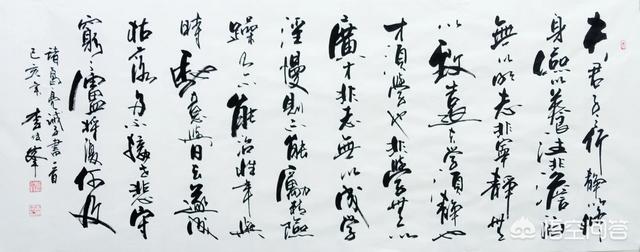 夫君子之行靜以修
身儉以養德非澹泊
無以明志非寧靜無
以致遠夫學須靜也
才須學也非學無以
廣才非志無以成學
淫慢則不能勵精險
躁則不能治性年與
時馳意與日去遂成
枯落多不接世悲守
窮廬將復何及
諸葛亮誡子書一首
己亥年李俊峰
悟空问答